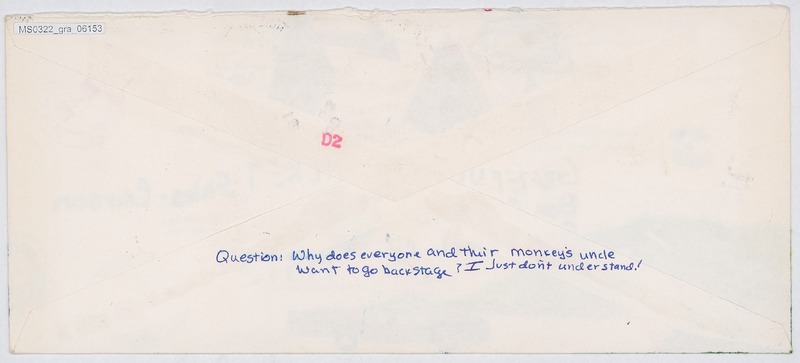 MS0322_gra_06153
D2
Question: Why does everyone and thuir monkey's uncle
want to go backstage? I Just don't understand!